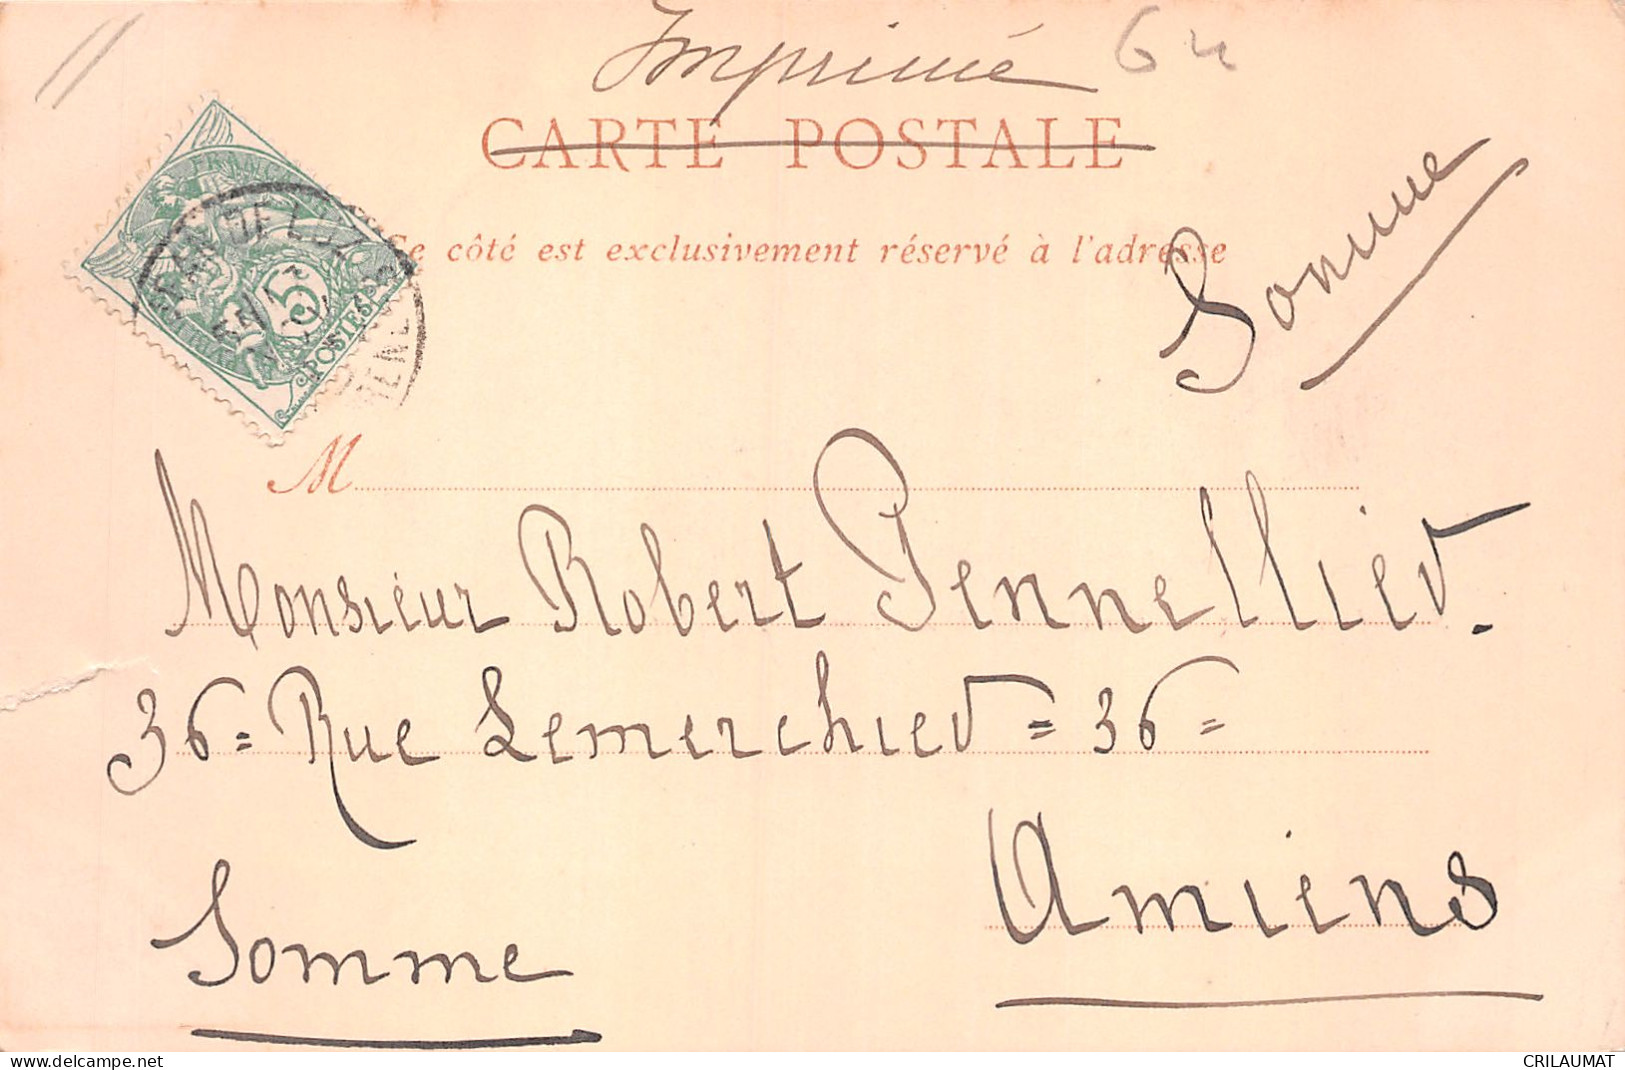 Imprimé 64
CARTE POSTALE
Ce côté est exclusivement réservé à l'adresse
Somme
FRANÇAISE
DE LUZ
5
POSTES
M
Monsieur Robert Pennellier.
36 = Rue Lemerchier = 36 =
Amiens
Somme
delcampe.net
CRILAUMAT